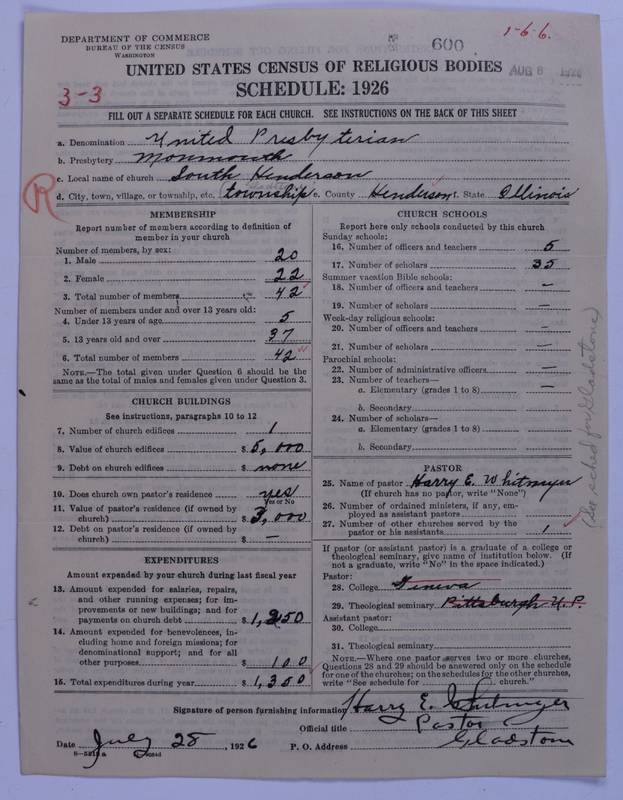 DEPARTMENT OF COMMERCE
BUREAU OF THE CENSUS
WASHINGTON
600
1-6-6.
AUG 8 1926
UNITED STATES CENSUS OF RELIGIOUS BODIES
3-3
SCHEDULE: 1926
FILL OUT A SEPARATE SCHEDULE FOR EACH CHURCH. SEE INSTRUCTIONS ON THE BACK OF THIS SHEET
a. Denomination United Presbyterian
b. Presbytery Monmouth
c. Local name of church South Henderson
R
d. City, town, village, or township, etc. township e. County Henderson f. State Illinois
MEMBERSHIP
Report number of members according to definition of
member in your church
Number of members, by sex:
1. Male 20
2. Female 22
3. Total number of members 42
Number of members under and over 13 years old:
4. Under 13 years of age 5
5. 13 years old and over 37
6. Total number of members 42
NOTE.—The total given under Question 6 should be
same as the total of males and females given under Question 3.
CHURCH BUILDINGS
See instructions, paragraphs 10 to 12
7. Number of church edifices 1
8. Value of church edifices $ 5,000
9. Debt on church edifices $ none
10. Does church own pastor's residence yes
Yes or No
11. Value of pastor's residence (if owned by
church) $ 3,000
12. Debt on pastor's residence (if owned by
church) $ —
EXPENDITURES
Amount expended by your church during last fiscal year
13. Amount expended for salaries, repairs,
and other running expenses; for im-
provements or new buildings; and for
payments on church debt $ 1,250
14. Amount expended for benevolences, in-
cluding home and foreign missions; for
denominational support; and for all
other purposes $ 100
15. Total expenditures during year $ 1,350
CHURCH SCHOOLS
Report here only schools conducted by this church
Sunday schools:
16. Number of officers and teachers 5
17. Number of scholars 35
Summer vacation Bible schools:
18. Number of officers and teachers —
19. Number of scholars —
Week-day religious schools:
20. Number of officers and teachers —
21. Number of scholars —
Parochial schools:
22. Number of administrative officers —
23. Number of teachers—
a. Elementary (grades 1 to 8) —
b. Secondary
24. Number of scholars—
a. Elementary (grades 1 to 8)
b. Secondary
(See sched for Gladstone)
PASTOR
25. Name of pastor Harry E. Whitmyer
(If church has no pastor, write "None")
26. Number of ordained ministers, if any, em-
ployed as assistant pastors
27. Number of other churches served by the
pastor or his assistants 1
If pastor (or assistant pastor) is a graduate of a college or
theological seminary, give name of institution below. (If
not a graduate, write "No" in the space indicated.)
Pastor:
28. College Geneva
29. Theological seminary Pittsburgh U.P.
Assistant pastor:
30. College
31. Theological seminary
NOTE.—Where one pastor serves two or more churches,
Questions 28 and 29 should be answered only on the schedule
for one of the churches; on the schedules for the other churches,
write "See schedule for church."
Signature of person furnishing information Harry E. Whitmyer
Official title Pastor
Date July 28, 1926 P. O. Address Gladstone